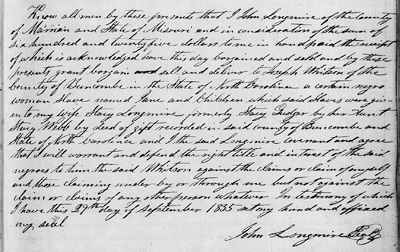 Know all men by these presents that I John Longmire of the County
of Marrian and State of Misouri and in consideration of the sum of
six hundred and twenty five dollars to me in hand paid the receipt
of which is acknowledged have this day bargained and sold and by these
presents grant bargain and sell and deliver to Joseph Whitson of the
County of Buncombe in the State of North Carolina a certain negro
woman slave named Jane and Children which said slaves were given
to my wife Stacy Longmire formerly Stacy by her Aunt
Stacy Webb by deed of gift recorded in said county of Buncombe and
State of North Carolina and I the said Longmire covenant and agree
that I will warrant and defend the right title and intrast of the said
negroes to him the said Whitson against the claims or claim of myself
and those claiming under by or through me but not against the
claim or claims of any other person whatever In testimony of which
I have this 29th day of September 1835 set my hand and affixed
my seal
John Longmire